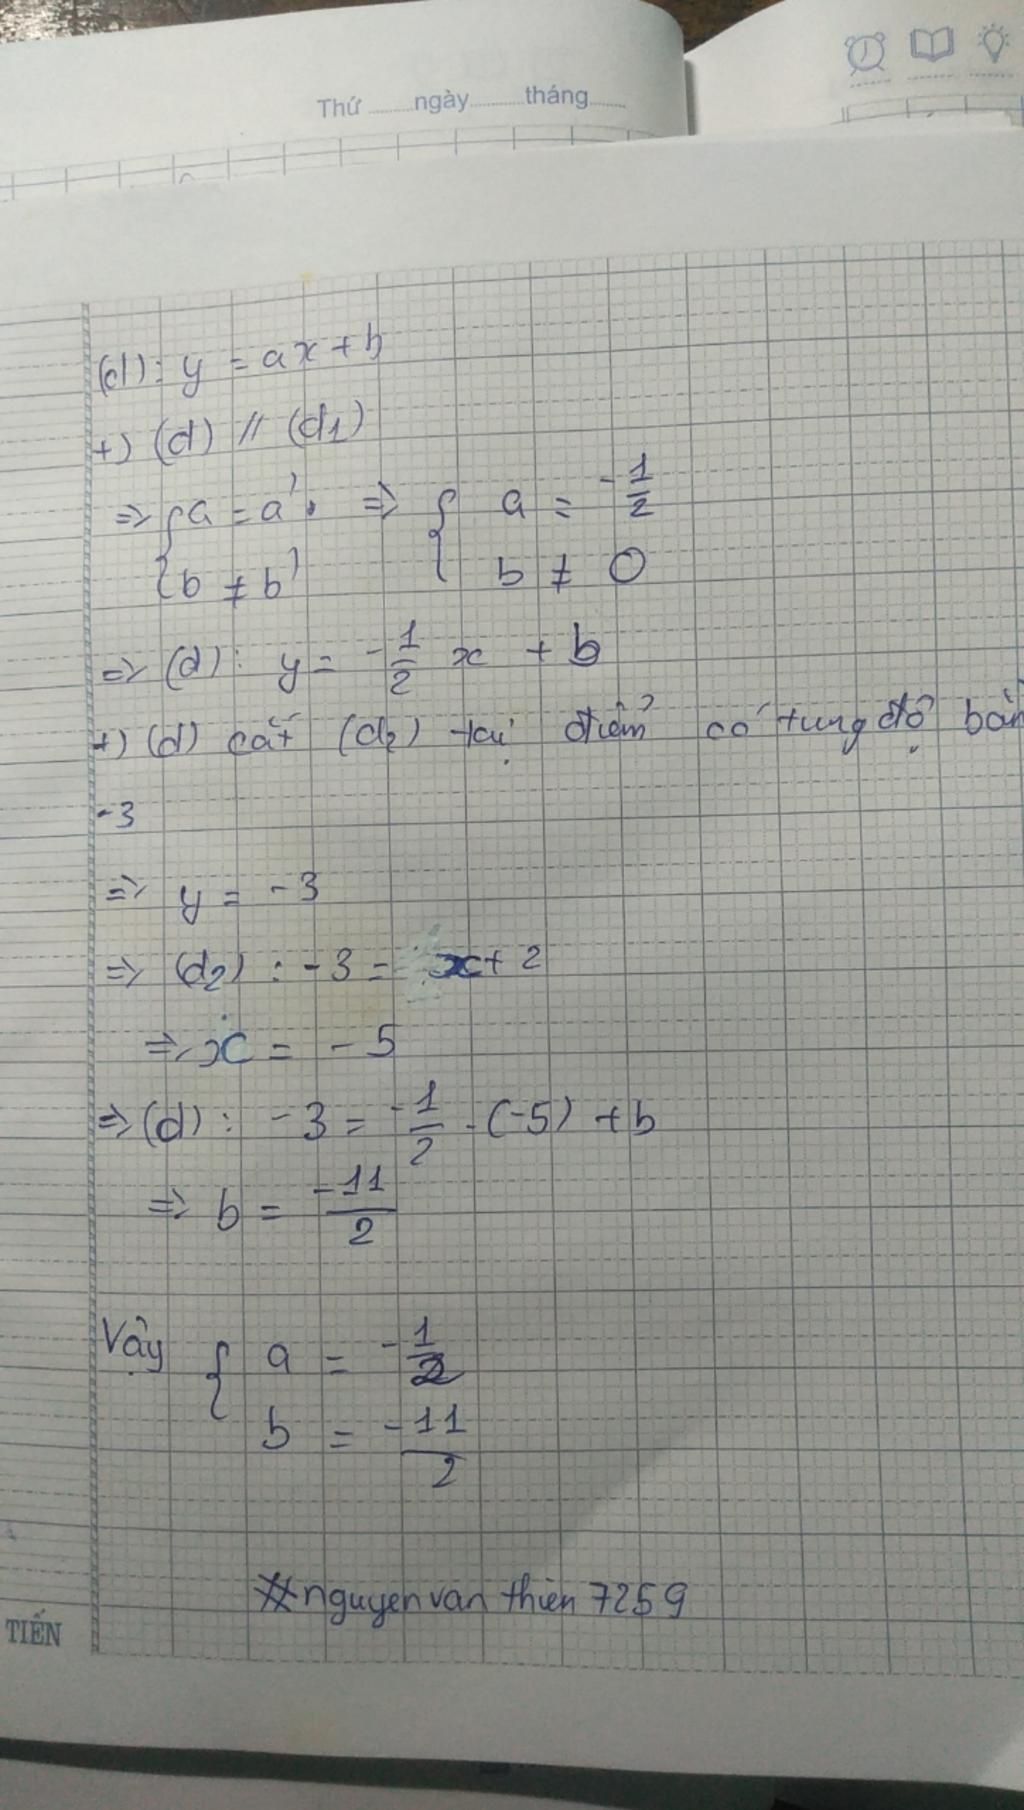 Thứ ngày tháng
(d): y = ax + b
+) (d) // (d1)
=> { a = a' => { a = -1/2
b ≠ b' b ≠ 0
=> (d): y = -1/2 x + b
+) (d) cắt (d2) tại điểm có tung độ bằn
-3
=> y = -3
=> (d2) : -3 = x + 2
=> x = -5
=> (d): -3 = -1/2 . (-5) + b
=> b = -11/2
Vậy { a = -1/2
b = -11/2
#nguyenvanthien7259
TIẾN